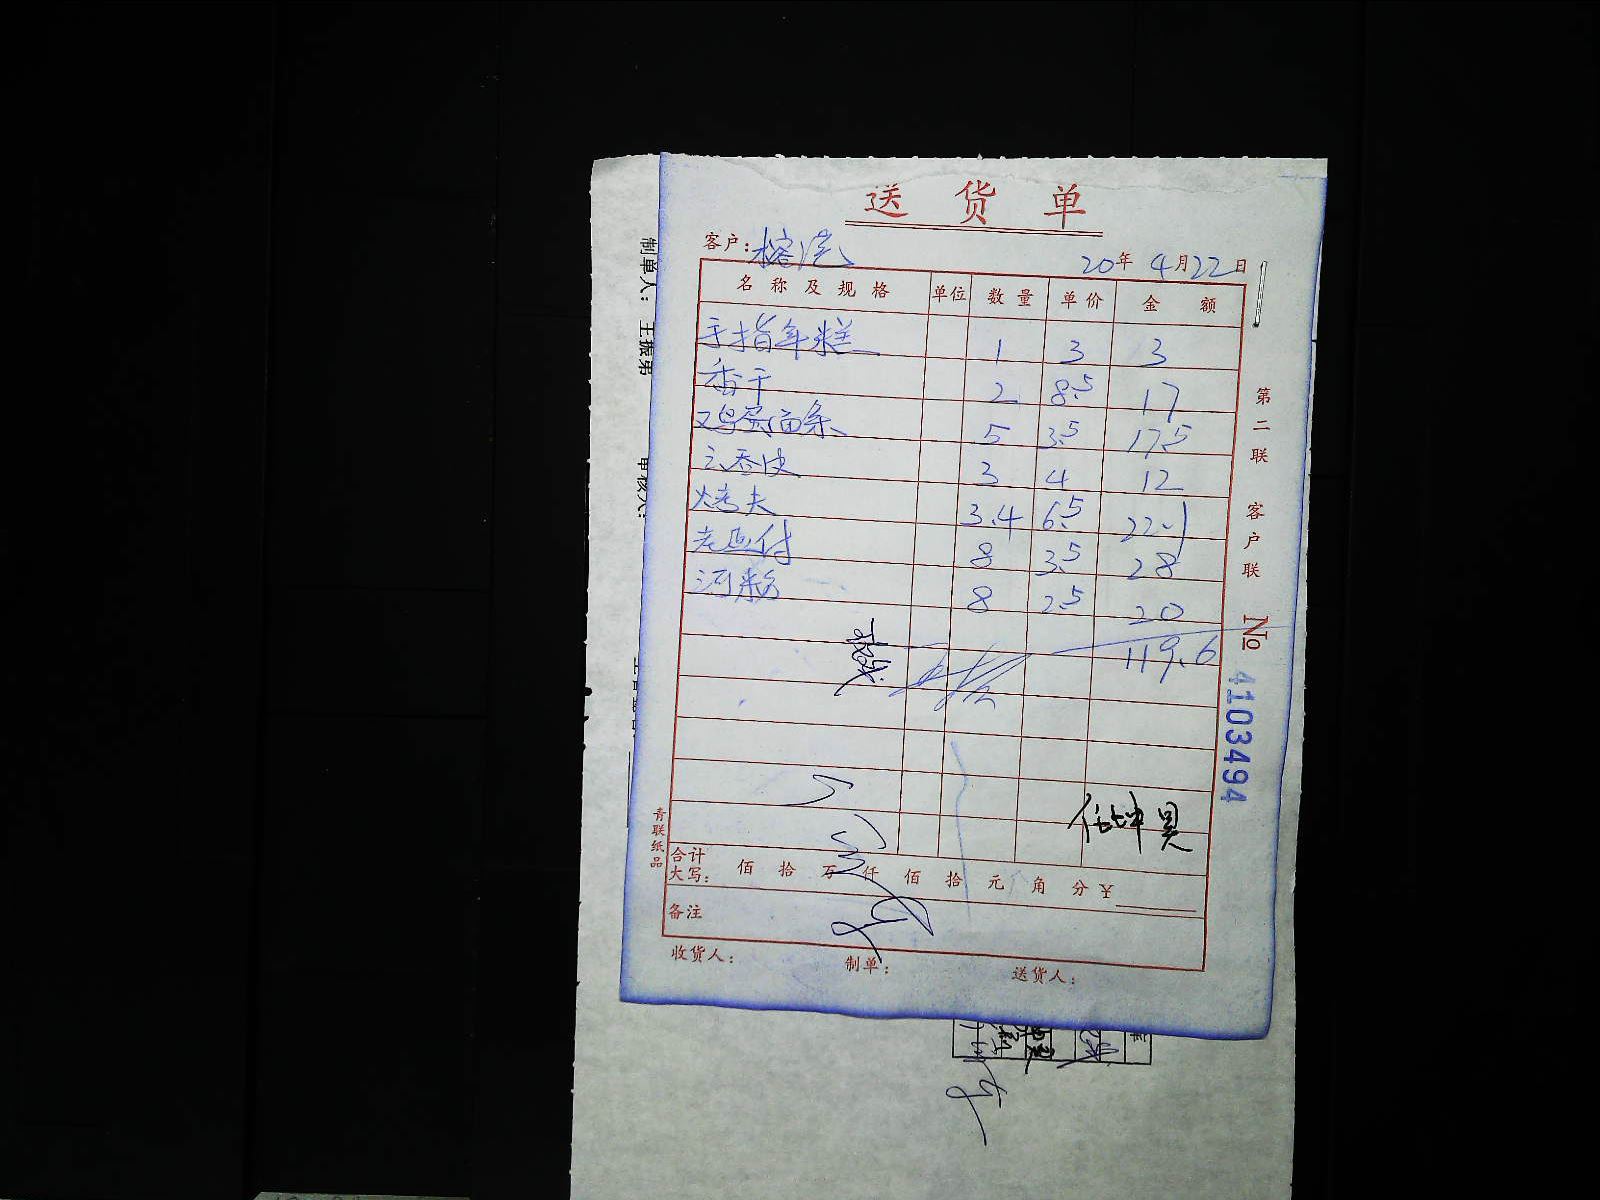 送货单
客户：榕流 20年4月22日
名称及规格 单位 数量 单价 金额
手指年糕 1 3 3
香干 2 8.5 17
鸡蛋面条 5 3.5 17.5
云吞皮 3 4 12
烤夫 3.4 6.5 22.1
老豆付 8 3.5 28
河粉 8 2.5 20
119.6
合计
大写： 佰 拾 万 仟 佰 拾 元 角 分 ¥
备注
收货人： 制单： 送货人：
第二联 客户联 No 4103494
青联纸品
制单人： 王振弟
审核人：